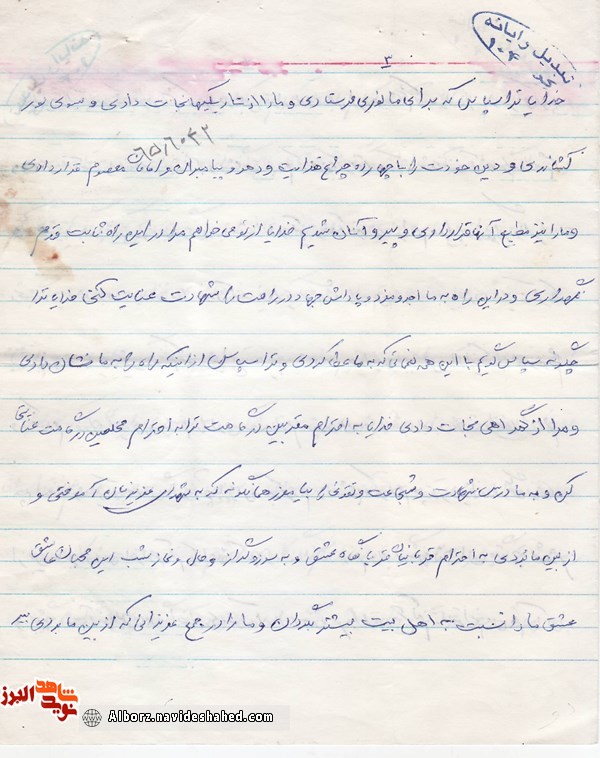 تبدیل رایانه
۳
خدایا ترا سپاس که برای ما نوری فرستادی و ما را از تاریکیها نجات دادی و بسوی نور
۶۵۸۶۰۴۲
کشاندی و دین خودت را با چهارده چراغ هدایت و دهر و پیامبران و امامان معصوم قرار دادی
و ما را نیز مطیع آنها قرار دادی و پیرو آنان شدیم خدایا از تو می خواهم مرا در این راه ثابت قدم
نگهداری و در این راه به ما اجر و مزد و پاداش جهاد در راهت را شهادت عنایت کنی خدایا ترا
چگونه سپاس گویم با این همه نعماتی که به ما عطا کردی و ترا سپاس از اینکه راه را به ما نشان دادی
و مرا از گمراهی نجات دادی خدایا به احترام مقربین درگاهت ترا به احترام مخلصین درگاهت عنایتی
کن و به ما درس شهادت و شجاعت و تقوی را بیاموز همانگونه که به شهدای عزیزمان آموختی و
از بین ما بردی به احترام قربانیان قربانگاه عشق و به سوز و گداز و حال و نماز شب این محبان عاشق
عشق ما را نسبت به اهل بیت بیشتر بگردان و ما را در جمع عزیزانی که از بین ما بردی ببر
نوید شاهد البرز
Alborz.navideshahed.com